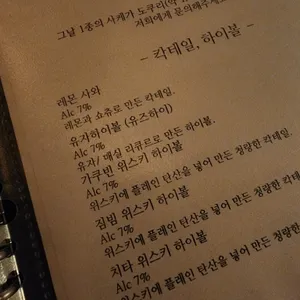 그날 1종의 사케가 도쿠리(약
저희에게 문의해주세요
- 칵테일, 하이볼 -
레몬 사와
Alc 7%
레몬과 쇼츄로 만든 칵테일.
유자하이볼 (유즈하이)
Alc 7%
유자/ 매실 리큐르로 만든 하이볼.
가쿠빈 위스키 하이볼
Alc 7%
위스키에 플레인 탄산을 넣어 만든 청량한 칵테일.
짐빔 위스키 하이볼
Alc 7%
위스키에 플레인 탄산을 넣어 만든 청량한 칵테일.
치타 위스키 하이볼
Alc 7%
위스키에 플레인 탄산을 넣어 만든 청량한